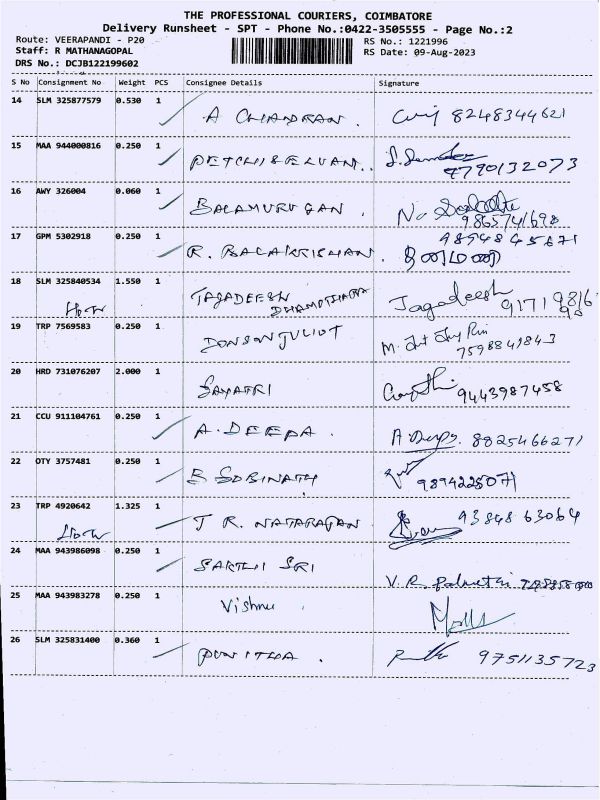 THE PROFESSIONAL COURIERS, COIMBATORE
Delivery Runsheet - SPT - Phone No.:0422-3505555 - Page No.:2
Route: VEERAPANDI - P20
Staff: R MATHANAGOPAL
DRS No.: DCJB122199602
RS No.: 1221996
RS Date: 09-Aug-2023
S No Consignment No Weight PCS Consignee Details Signature
14 SLM 325877579 0.530 1 A CHANDRAN. 8248344621
15 MAA 944000816 0.250 1 PETCHISELVAN.. 9790132073
16 AWY 326004 0.060 1 BALAMURUGAN. No 9865741698
17 GPM 5302918 0.250 1 R. BALAKRISHNAN.
18 SLM 325840534 1.550 1 JAGADEESH Jagadeesh
19 TRP 7569583 0.250 1 7598841843
20 HRD 731076207 2.000 1 GAYATRI 9443987458
21 CCU 911104761 0.250 1 A. DEEPA. 8825466271
22 OTY 3757481 0.250 1 GOBINATH 9894228071
23 TRP 4920642 1.325 1 T R. NATARAJAN 93848 63064
24 MAA 943986098 0.250 1 SAKTHI SRI V. R.
25 MAA 943983278 0.250 1 Vishnu
26 SLM 325831400 0.360 1 PUNITHA. 9751135723